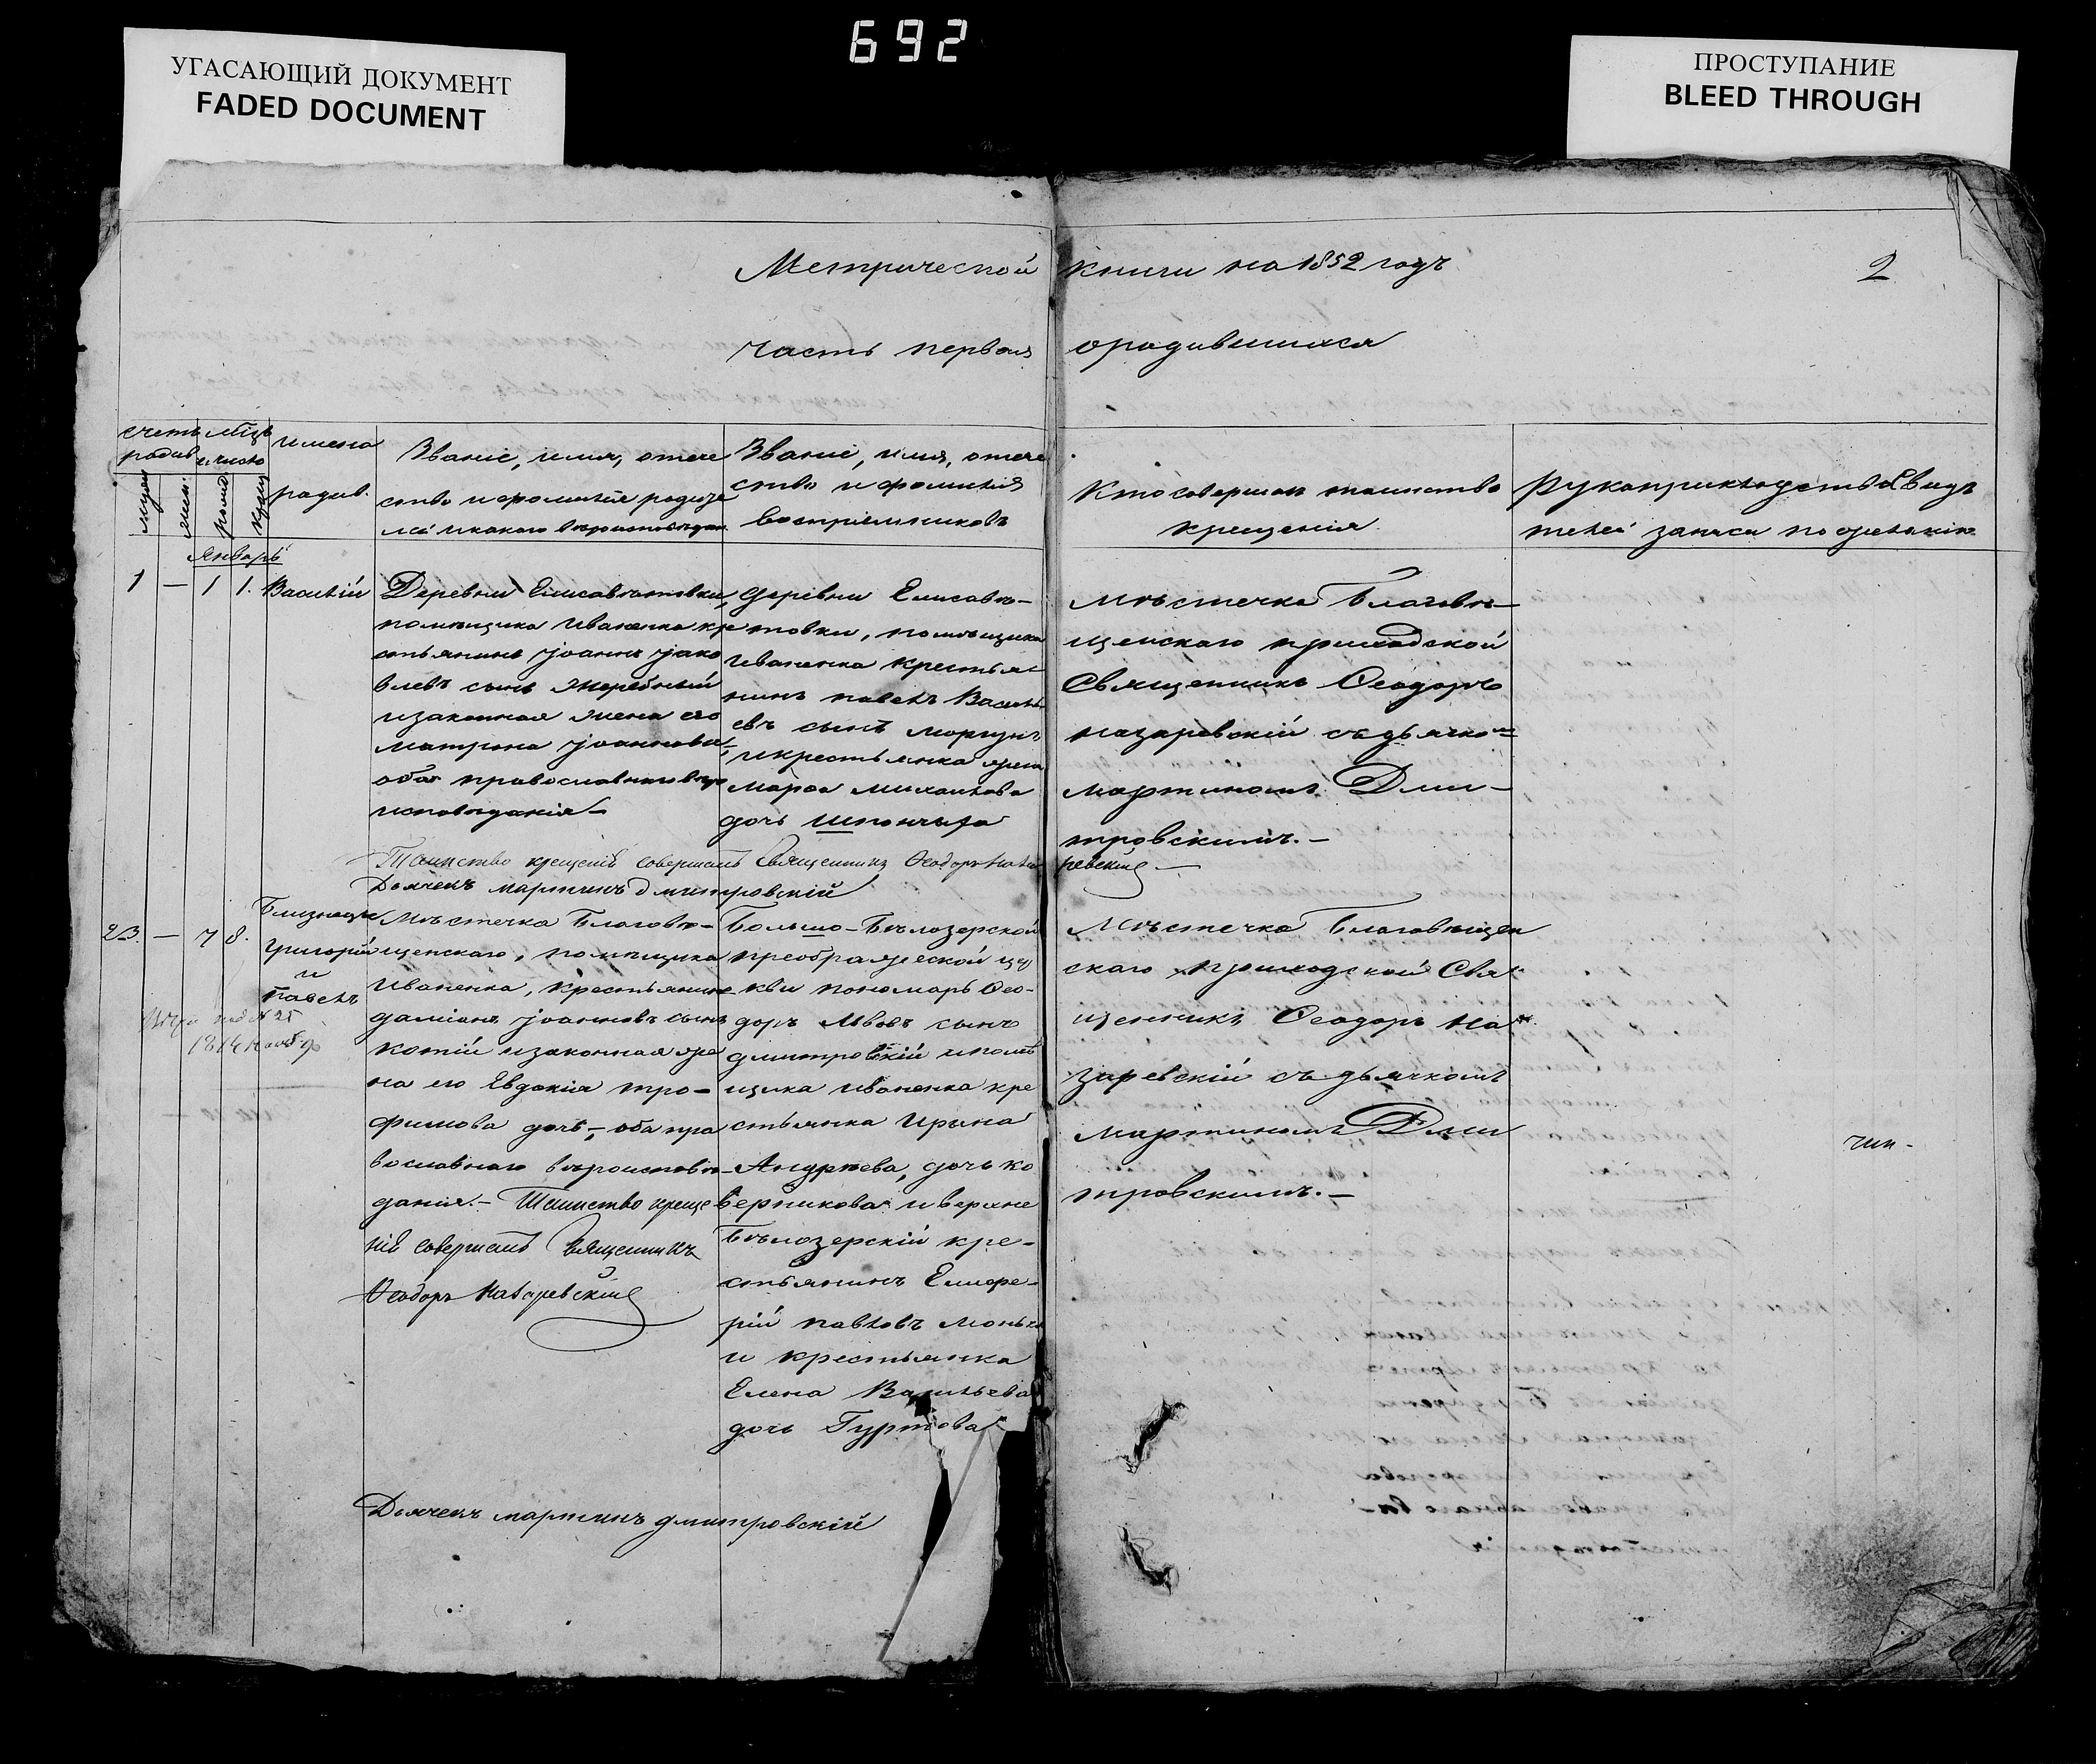 692
УГАСАЮЩИЙ ДОКУМЕНТ
FADED DOCUMENT
ПРОСТУПАНИЕ
BLEED THROUGH
Метрической книги на 1852 годъ
2
часть первая о родившихся
счетъ родив.
мѣсц. и число
имена родив.
Званіе, имя, отече
ство и фамилія родите
лей и какого вѣроисповѣдан.
Званіе, имя, отече
ство и фамилія
воспріемниковъ
Кто совершалъ таинство
крещенія
Рукоприкладство свидѣ
телей записи по желанію
Январь
1 — 1 1. Василій
Деревни Елисаветовки,
помѣщика Иваненка кре
стьянинъ Іоаннъ Яко
влевъ сынъ Жеребный
и законная жена его
Матрона Іоаннова,
оба православнаго вѣро
исповѣданія —
деревни Елисавѣ—
товки, помѣщика
Иваненка крестья-
нинъ Павелъ Василь
евъ сынъ Моргунъ
и крестьянка
Марфа Михаилова
дочь
Мѣстечка Благовѣ—
щенскаго приходской
Священникъ Ѳеодоръ
Назаревскій съ дьячко
Мартиномъ Дми—
тровскимъ. —
Таинство крещенія совершалъ Священникъ Ѳеодоръ Назаревскій —
Дьячекъ Мартинъ Дмитровскій
23. — 7 8.
Близнецы
Григорій
и
Павелъ
под № 25
Мѣстечка Благовѣ—
щенскаго, помѣщика
Иваненка, крестьянинъ
Даміанъ Іоанновъ сынъ
Котій и законная же
на его Евдокія Тро—
фимова дочь, — оба пра
вославнаго вѣроисповѣ—
данія. — Таинство креще
нія совершалъ Священникъ
Ѳеодоръ Назаревскій
Больше-Бѣлозерской
Преображеской це
кви пономарь Ѳео-
доръ Львовъ сынъ
Дмитровскій и помѣ
щика Иваненка кре
стьянка Ирина
Андреева, дочь Ко
верникова и верхне
Бѣлозерскій кре—
стьянинъ Елифе—
рій Павловъ
и крестьянка
Елена Васильева
дочь Гуртова
Дьячекъ Мартинъ Дмитровскій
Мѣстечка Благовѣщен
скаго приходской Свя
щенникъ Ѳеодоръ На
заревскій съ дьячкомъ
Мартиномъ Дми
тровскимъ. —